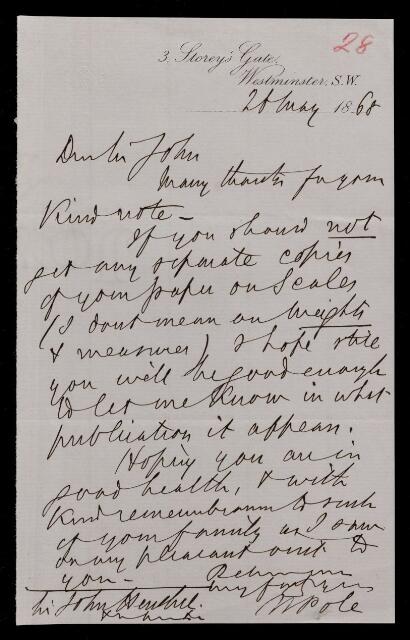 28
3, Storey's Gate,
Westminster, S.W.
26 May 1868
Dear Sir John
Many thanks for your
kind note –
If you should not
get any separate copies
of your paper on Scales
(I dont mean on weights
& measures) I hope still
you will be good enough
to let me know in what
publication it appears.
Hoping you are in
good health, & with
kind remembrances to such
of your family as I saw
on my pleasant visit to
you – Believe me
Sir John Herschel. my
W Pole